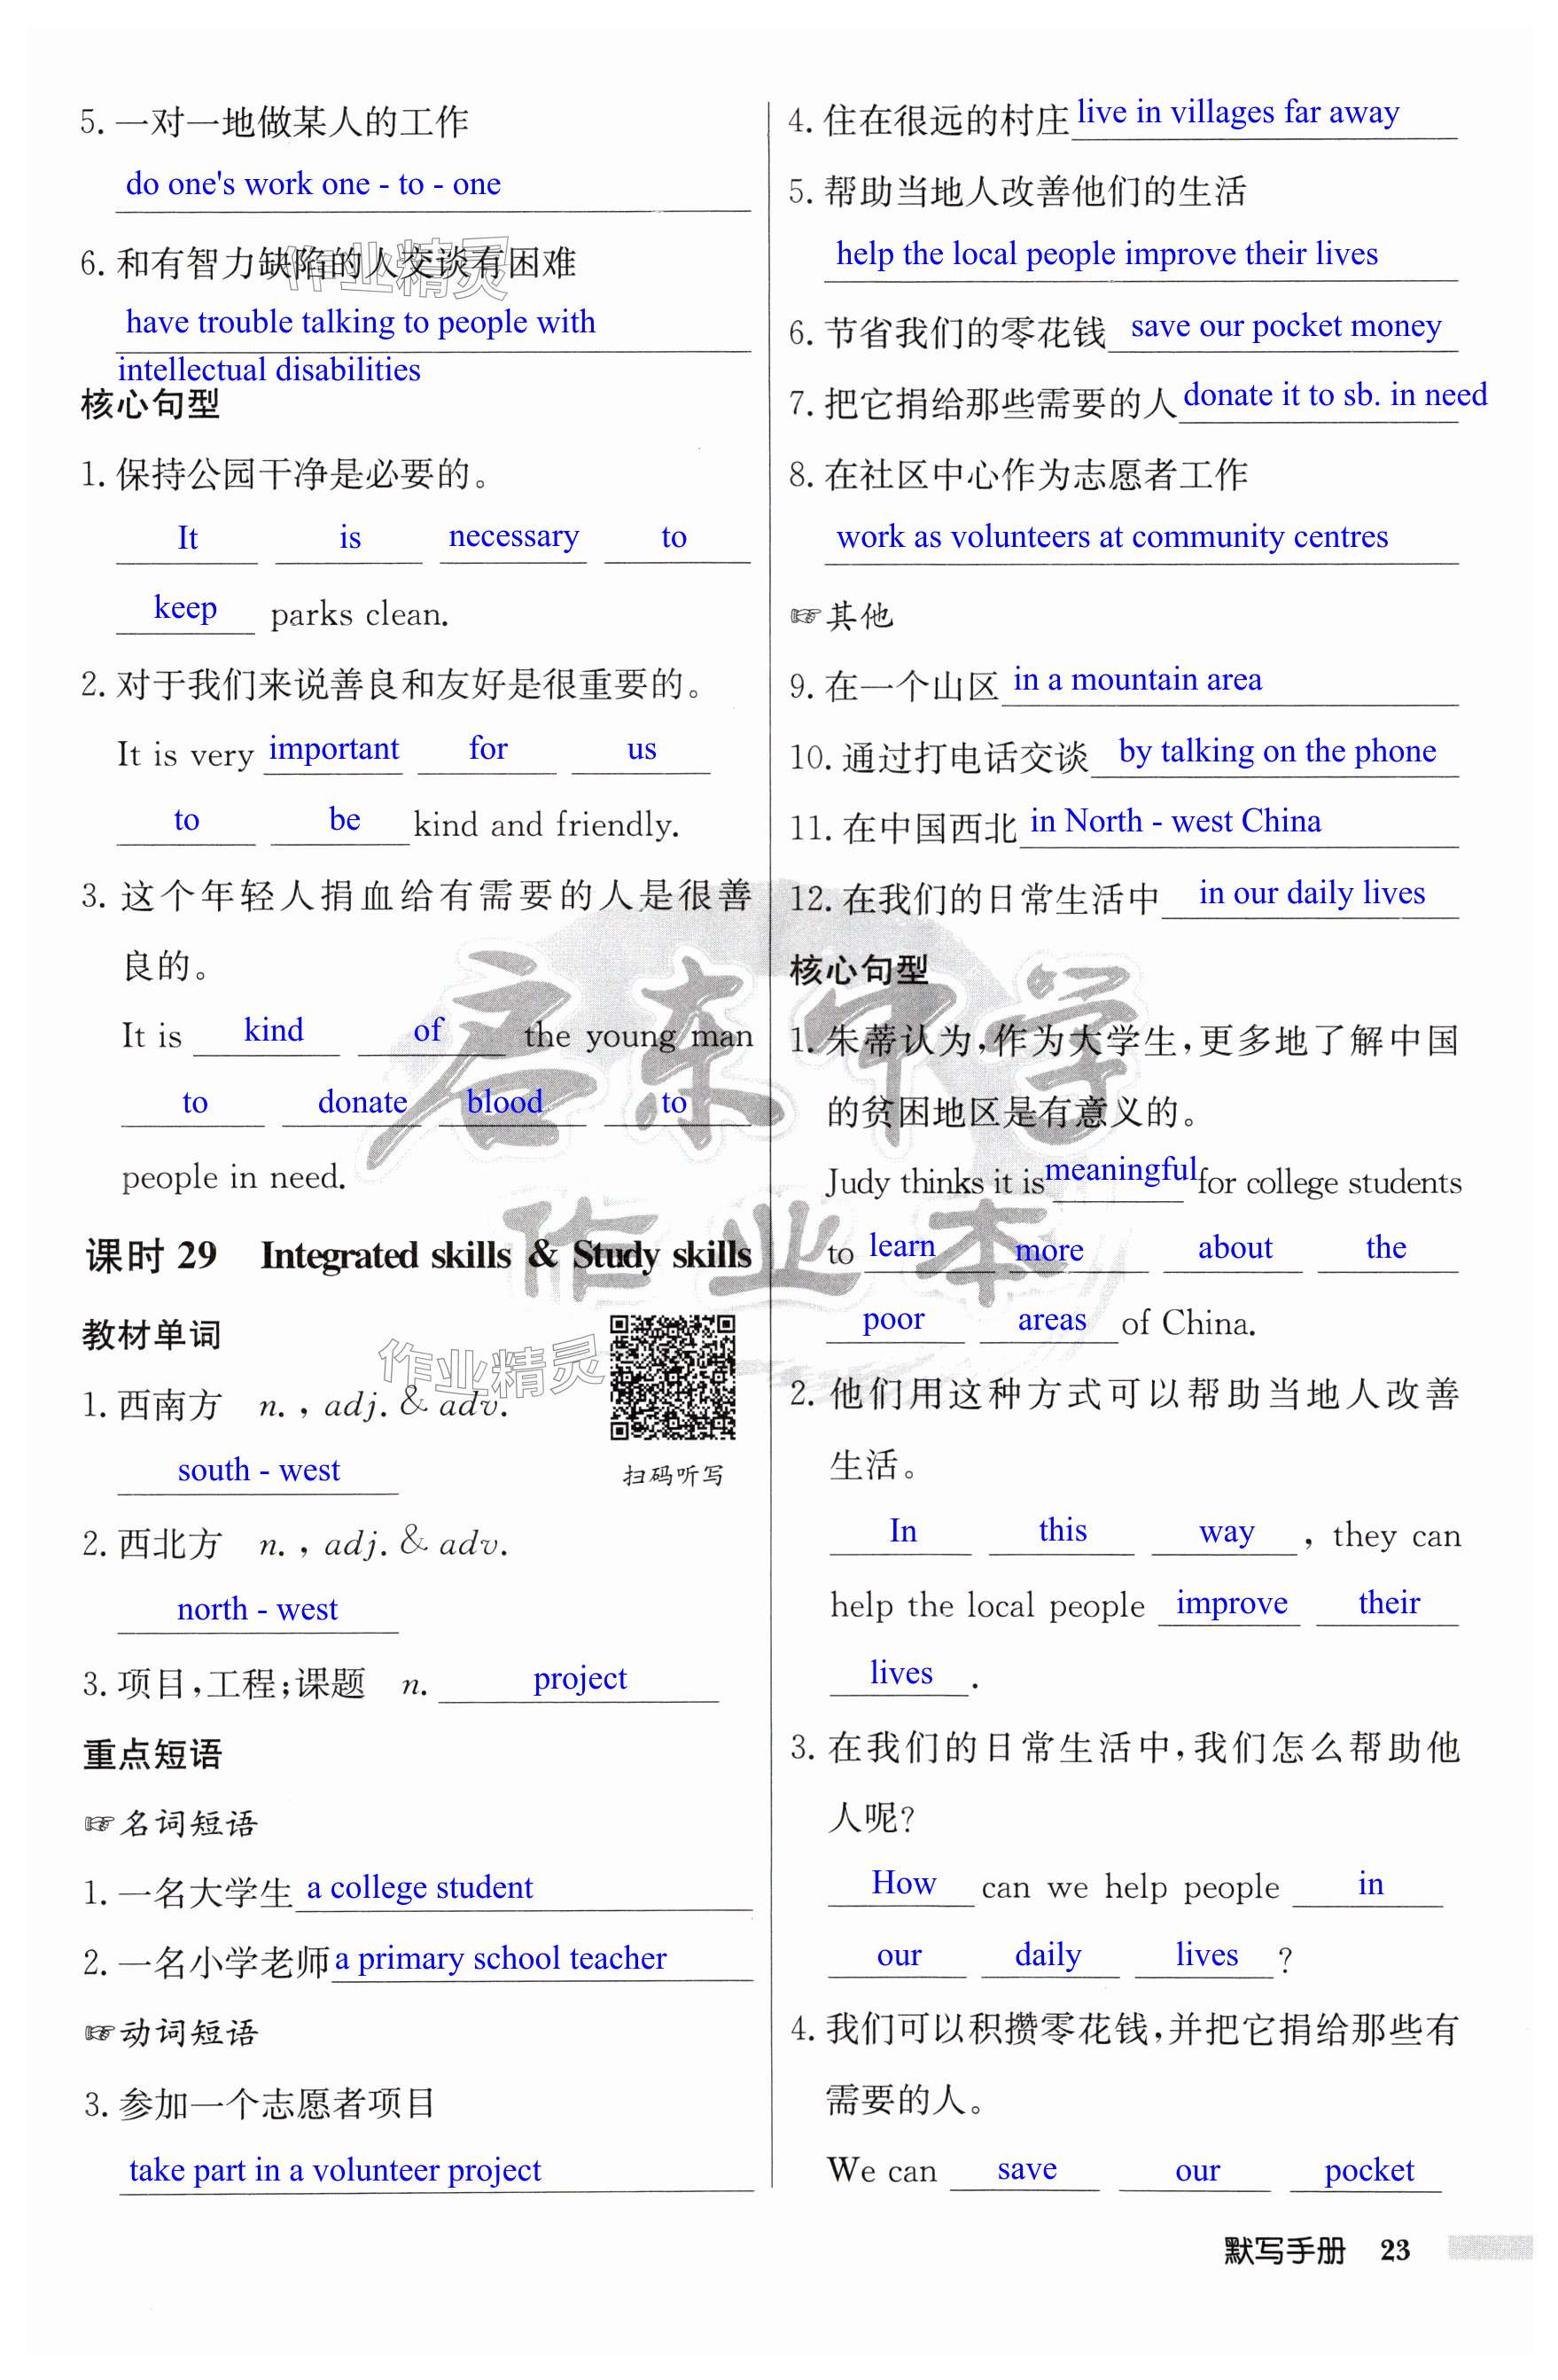 5. 一对一地做某人的工作
do one's work one - to - one
6. 和有智力缺陷的人交谈有困难
have trouble talking to people with
intellectual disabilities
核心句型
1. 保持公园干净是必要的。
It is necessary to
keep parks clean.
2. 对于我们来说善良和友好是很重要的。
It is very important for us
to be kind and friendly.
3. 这个年轻人捐血给有需要的人是很善
良的。
It is kind of the young man
to donate blood to
people in need.
课时 29 Integrated skills & Study skills
教材单词
1. 西南方 n. , adj. & adv.
south - west
扫码听写
2. 西北方 n. , adj. & adv.
north - west
3. 项目,工程;课题 n. project
重点短语
☞名词短语
1. 一名大学生 a college student
2. 一名小学老师 a primary school teacher
☞动词短语
3. 参加一个志愿者项目
take part in a volunteer project
4. 住在很远的村庄 live in villages far away
5. 帮助当地人改善他们的生活
help the local people improve their lives
6. 节省我们的零花钱 save our pocket money
7. 把它捐给那些需要的人 donate it to sb. in need
8. 在社区中心作为志愿者工作
work as volunteers at community centres
☞其他
9. 在一个山区 in a mountain area
10. 通过打电话交谈 by talking on the phone
11. 在中国西北 in North - west China
12. 在我们的日常生活中 in our daily lives
核心句型
1. 朱蒂认为,作为大学生,更多地了解中国
的贫困地区是有意义的。
Judy thinks it is meaningful for college students
to learn more about the
poor areas of China.
2. 他们用这种方式可以帮助当地人改善
生活。
In this way , they can
help the local people improve their
lives .
3. 在我们的日常生活中,我们怎么帮助他
人呢?
How can we help people in
our daily lives ?
4. 我们可以积攒零花钱,并把它捐给那些有
需要的人。
We can save our pocket
默写手册 23
作业精灵
启东中学
作业本
作业精灵